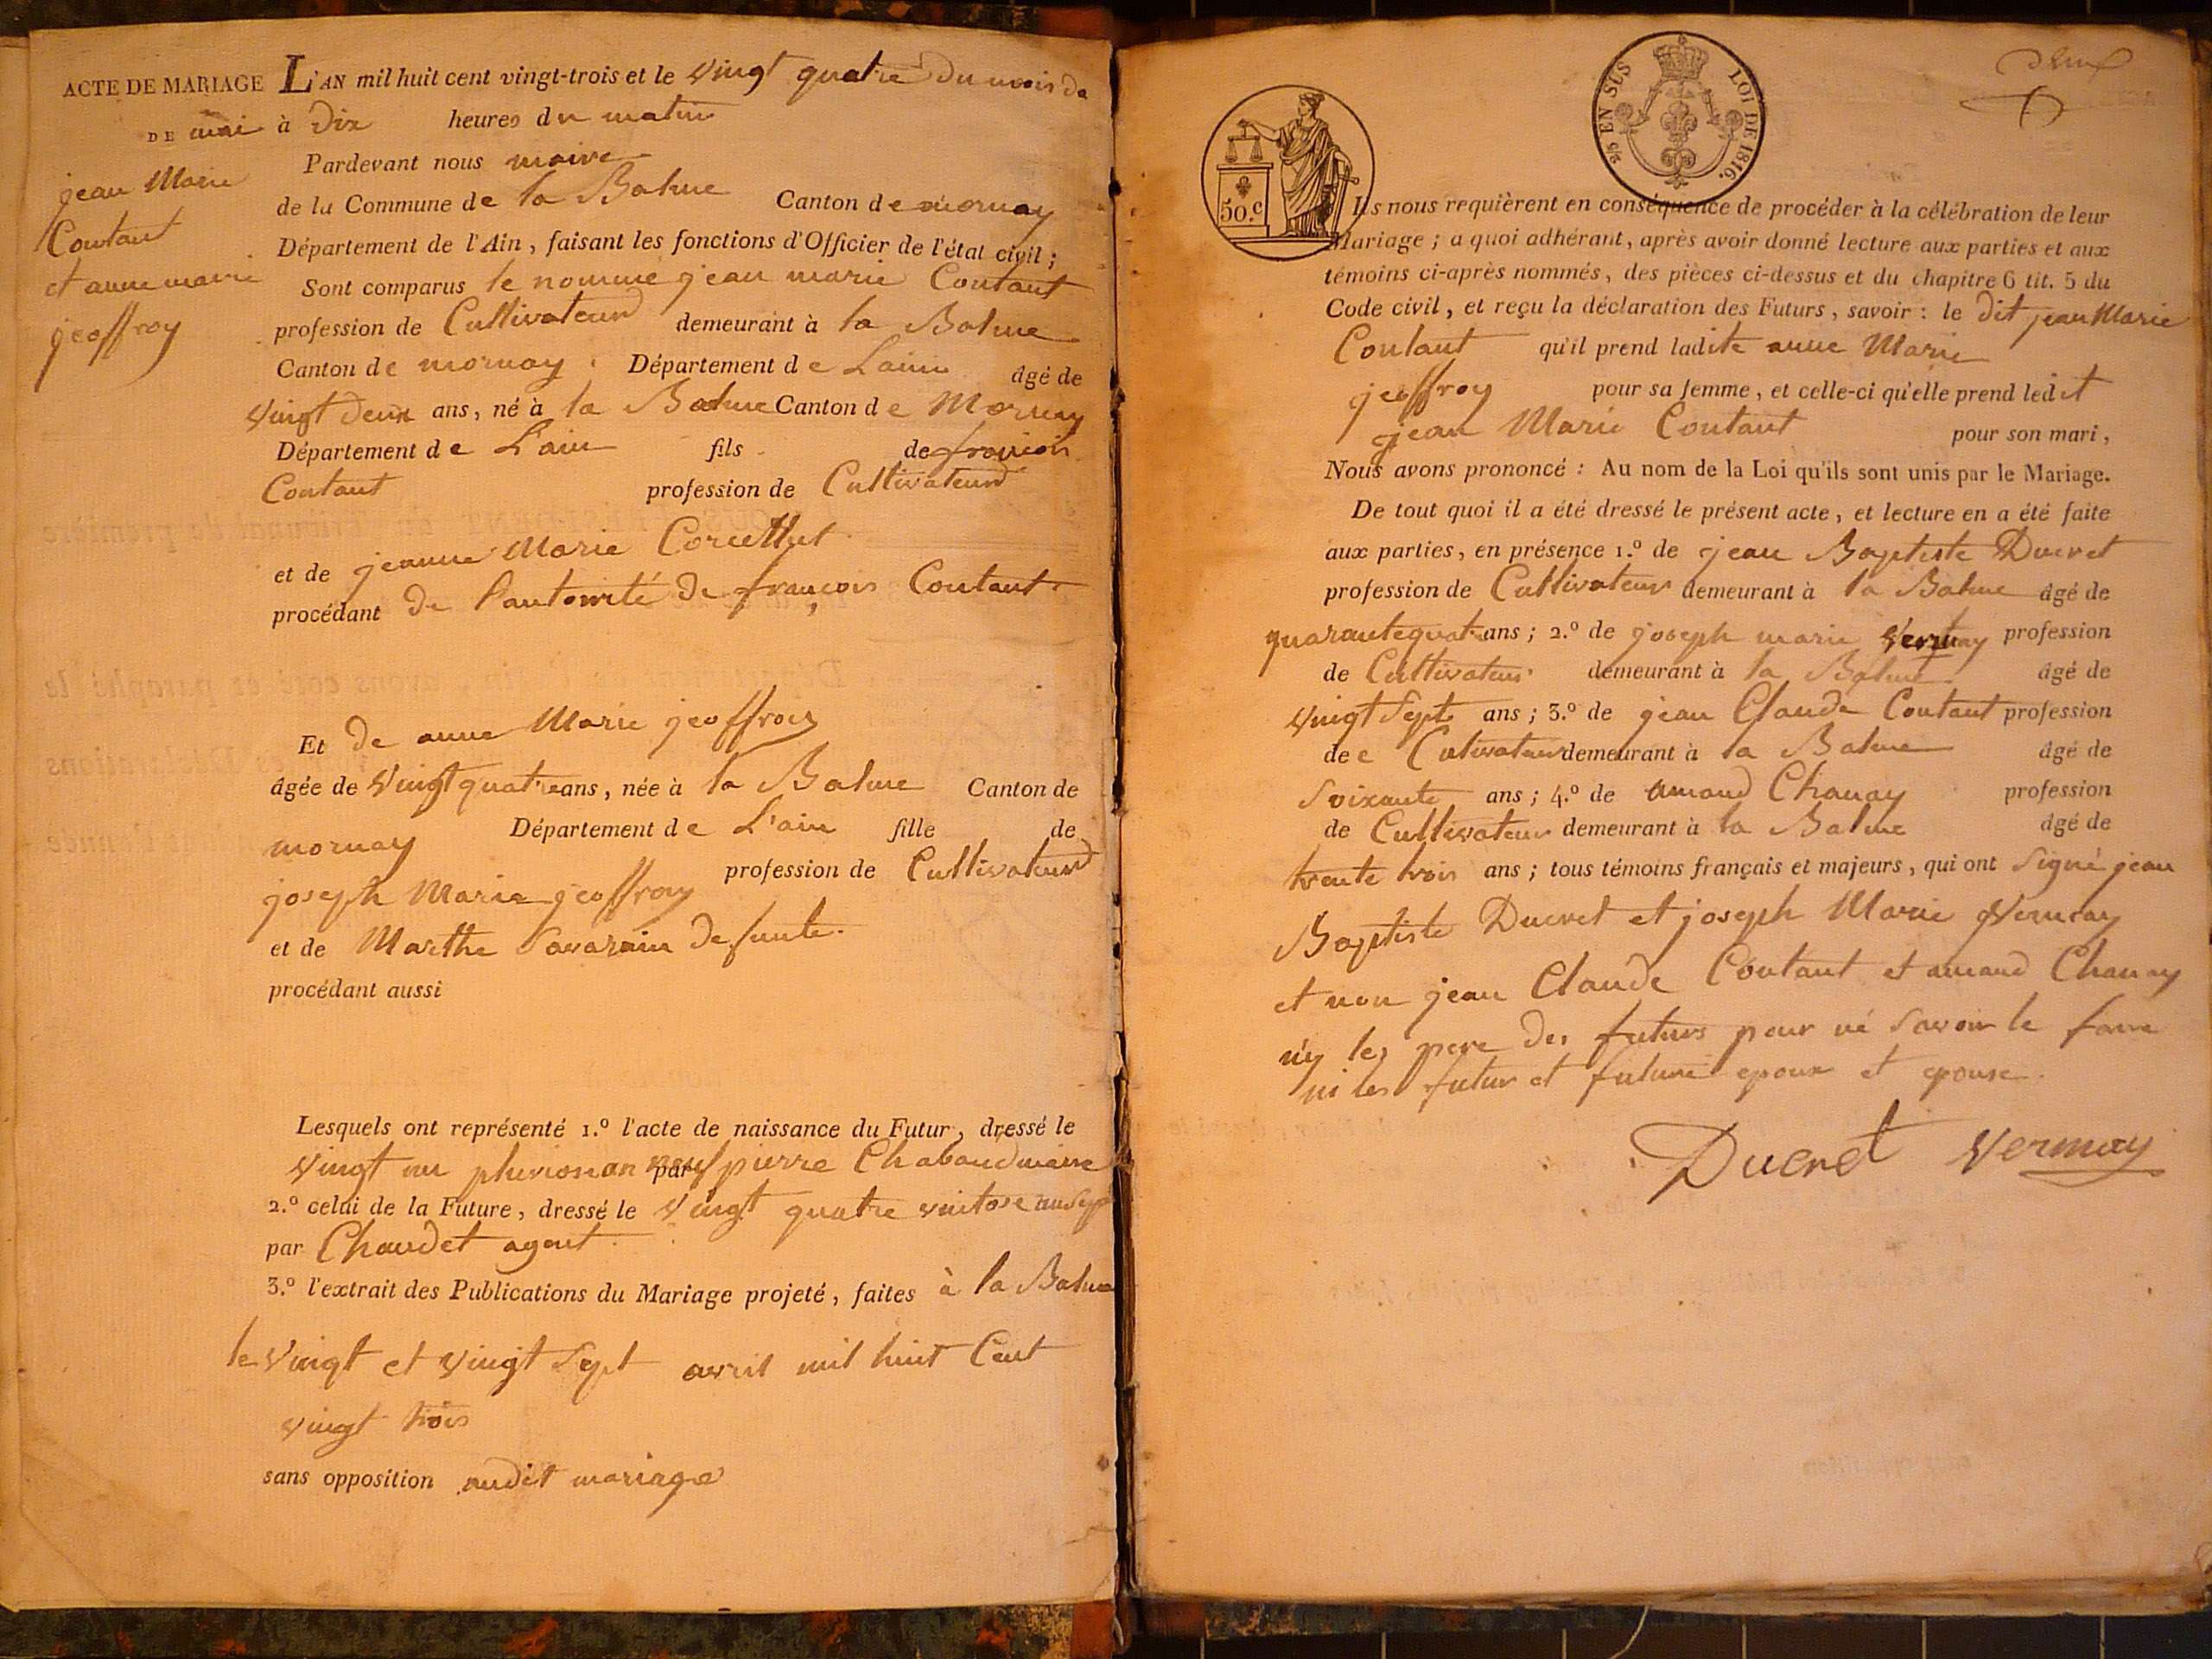 ACTE DE MARIAGE
DE mai
jean Marie
Coutant
et anne marie
geoffroy
L'AN mil huit cent vingt-trois et le vingt quatre du mois de
à dix heures du matin
Pardevant nous maire
de la Commune de la Balme Canton de mornay
Département de l'Ain, faisant les fonctions d'Officier de l'état civil;
Sont comparus le nommé jean marie Coutant
profession de Cultivateur demeurant à la Balme
Canton de mornay Département de Lain âgé de
vingt deux ans, né à la Balme Canton de Mornay
Département de L'ain fils de françois
Coutant profession de Cultivateur
et de jeanne Marie
procédant de l'autorité de françois Coutant
Et de anne Marie geoffroy
âgée de vingt quatre ans, née à la Balme Canton de
mornay Département de L'ain fille de
joseph Marie geoffroy profession de Cultivateur
et de Marthe Savarain defunte.
procédant aussi
Lesquels ont représenté 1.º l'acte de naissance du Futur, dressé le
vingt un pluviose an neuf par pierre Chabaud maire
2.º celui de la Future, dressé le vingt quatre vintose an sept
par Chaudet agent
3.º l'extrait des Publications du Mariage projeté, faites à la Balme
le vingt et vingt sept avril mil huit Cent
vingt trois
sans opposition audit mariage
deux
5/5 EN SUS LOI DE 1816.
50.c
Ils nous requièrent en conséquence de procéder à la célébration de leur
Mariage; a quoi adhérant, après avoir donné lecture aux parties et aux
témoins ci-après nommés, des pièces ci-dessus et du chapitre 6 tit. 5 du
Code civil, et reçu la déclaration des Futurs, savoir: le dit jean Marie
Coutant qu'il prend ladite anne Marie
geoffroy pour sa femme, et celle-ci qu'elle prend ledit
jean Marie Coutant pour son mari,
Nous avons prononcé: Au nom de la Loi qu'ils sont unis par le Mariage.
De tout quoi il a été dressé le présent acte, et lecture en a été faite
aux parties, en présence 1.º de jean Baptiste Ducret
profession de Cultivateur demeurant à la Balme âgé de
quarante quatre ans; 2.º de joseph marie Vernay profession
de Cultivateur demeurant à la Balme âgé de
vingt sept ans; 3.º de jean Claude Coutant profession
de Cutivateur demeurant à la Balme âgé de
Soixante ans; 4.º de amand Chanay profession
de Cultivateur demeurant à la Balme âgé de
trente trois ans; tous témoins français et majeurs, qui ont signé jean
Baptiste Ducret et joseph Marie Vernay
et non jean Claude Coutant et amand Chanay
n'y les pere des futurs pour ne savoir le faire
ni les futur et future epoux et epouse.
Ducret Vernay